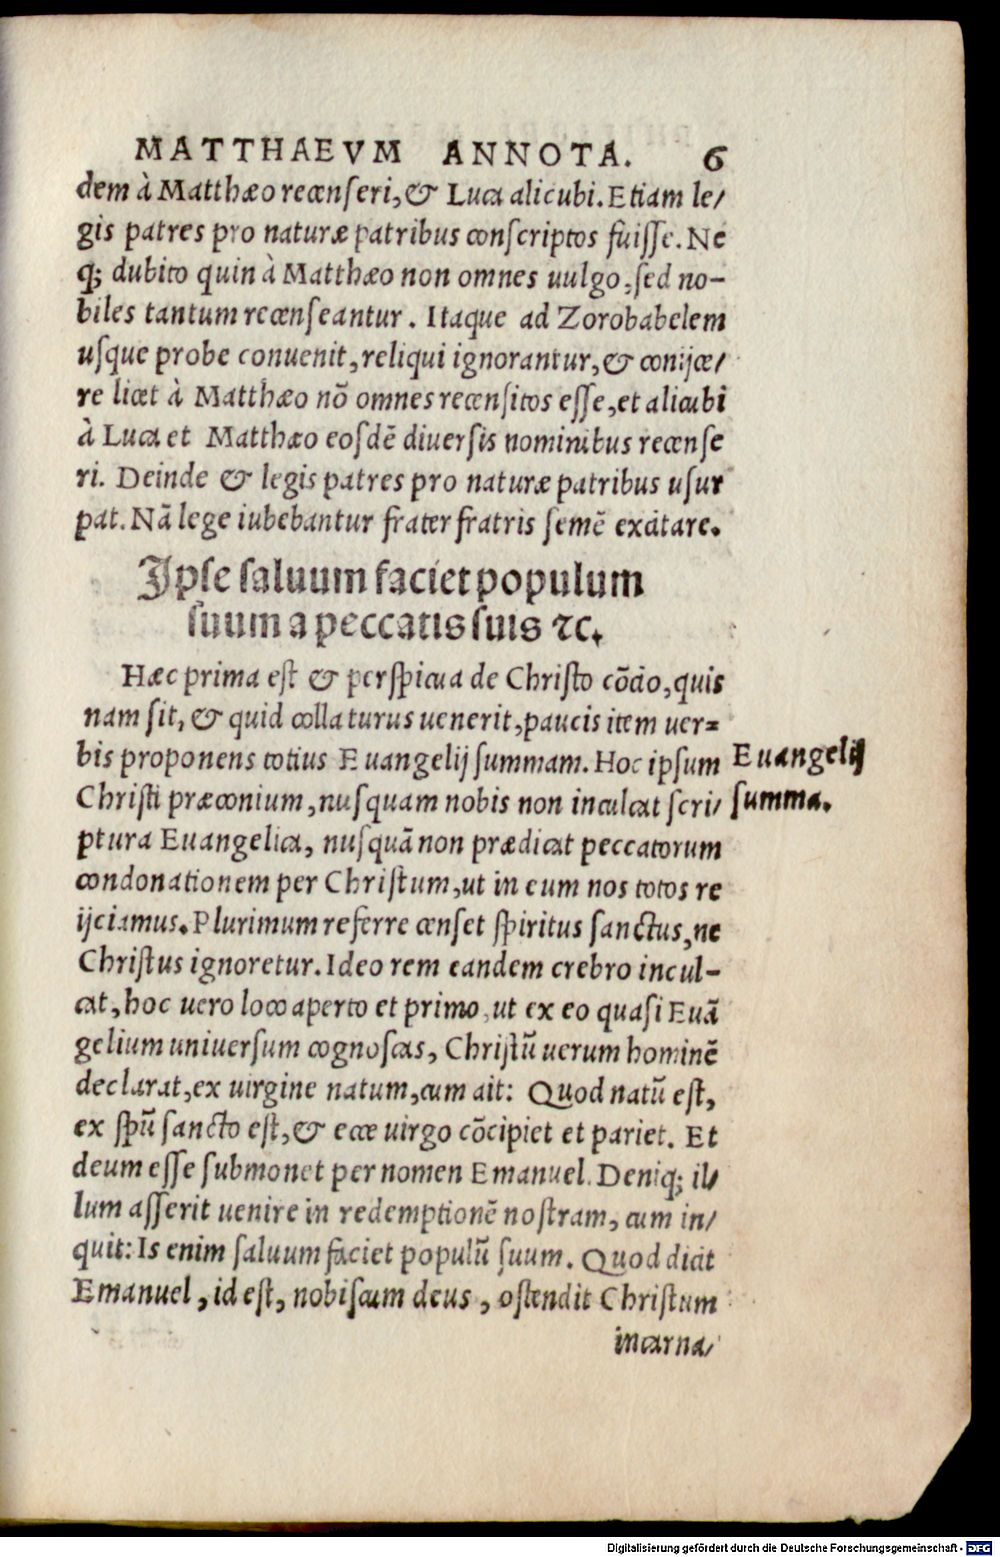 MATTHAEVM ANNOTA. 6
dem à Matthæo recenseri, & Luca alicubi. Etiam le/
gis patres pro naturæ patribus conscriptos fuisse. Ne
q; dubito quin à Matthæo non omnes uulgo, sed no-
biles tantum recenseantur. Itaque ad Zorobabelem
usque probe conuenit, reliqui ignorantur, & conijce/
re licet à Matthæo nō omnes recensitos esse, et alicubi
à Luca et Matthæo eosdē diuersis nominibus recense
ri. Deinde & legis patres pro naturæ patribus usur
pat. Nā lege iubebantur frater fratris semē excitare.
Ipse saluum faciet populum
suum a peccatis suis ꝛc.
Hæc prima est & perspicua de Christo cōcio, quis
nam sit, & quid collaturus uenerit, paucis item uer=
bis proponens totius Euangelij summam. Hoc ipsum
Euangelij
Christi præconium, nusquam nobis non inculcat scri/
summa.
ptura Euangelica, nusquā non prædicat peccatorum
condonationem per Christum, ut in eum nos totos re
ijciamus. Plurimum referre censet spiritus sanctus, ne
Christus ignoretur. Ideo rem eandem crebro incul-
cat, hoc uero loco aperto et primo, ut ex eo quasi Euā
gelium uniuersum cognoscas, Christū uerum hominē
declarat, ex uirgine natum, cum ait: Quod natū est,
ex spū sancto est, & ecce uirgo cōcipiet et pariet. Et
deum esse submonet per nomen Emanuel. Deniq; il/
lum asserit uenire in redemptionē nostram, cum in/
quit: Is enim saluum faciet populū suum. Quod dicit
Emanuel, id est, nobiscum deus, ostendit Christum
incarna/
Digitalisierung gefördert durch die Deutsche Forschungsgemeinschaft - DFG